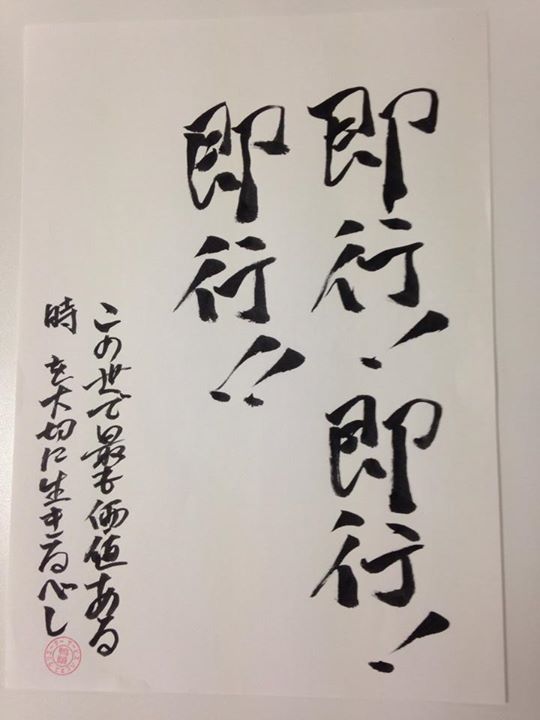 即行!即行!
即行!!
この世で最も価値ある
時を大切に生きる心し